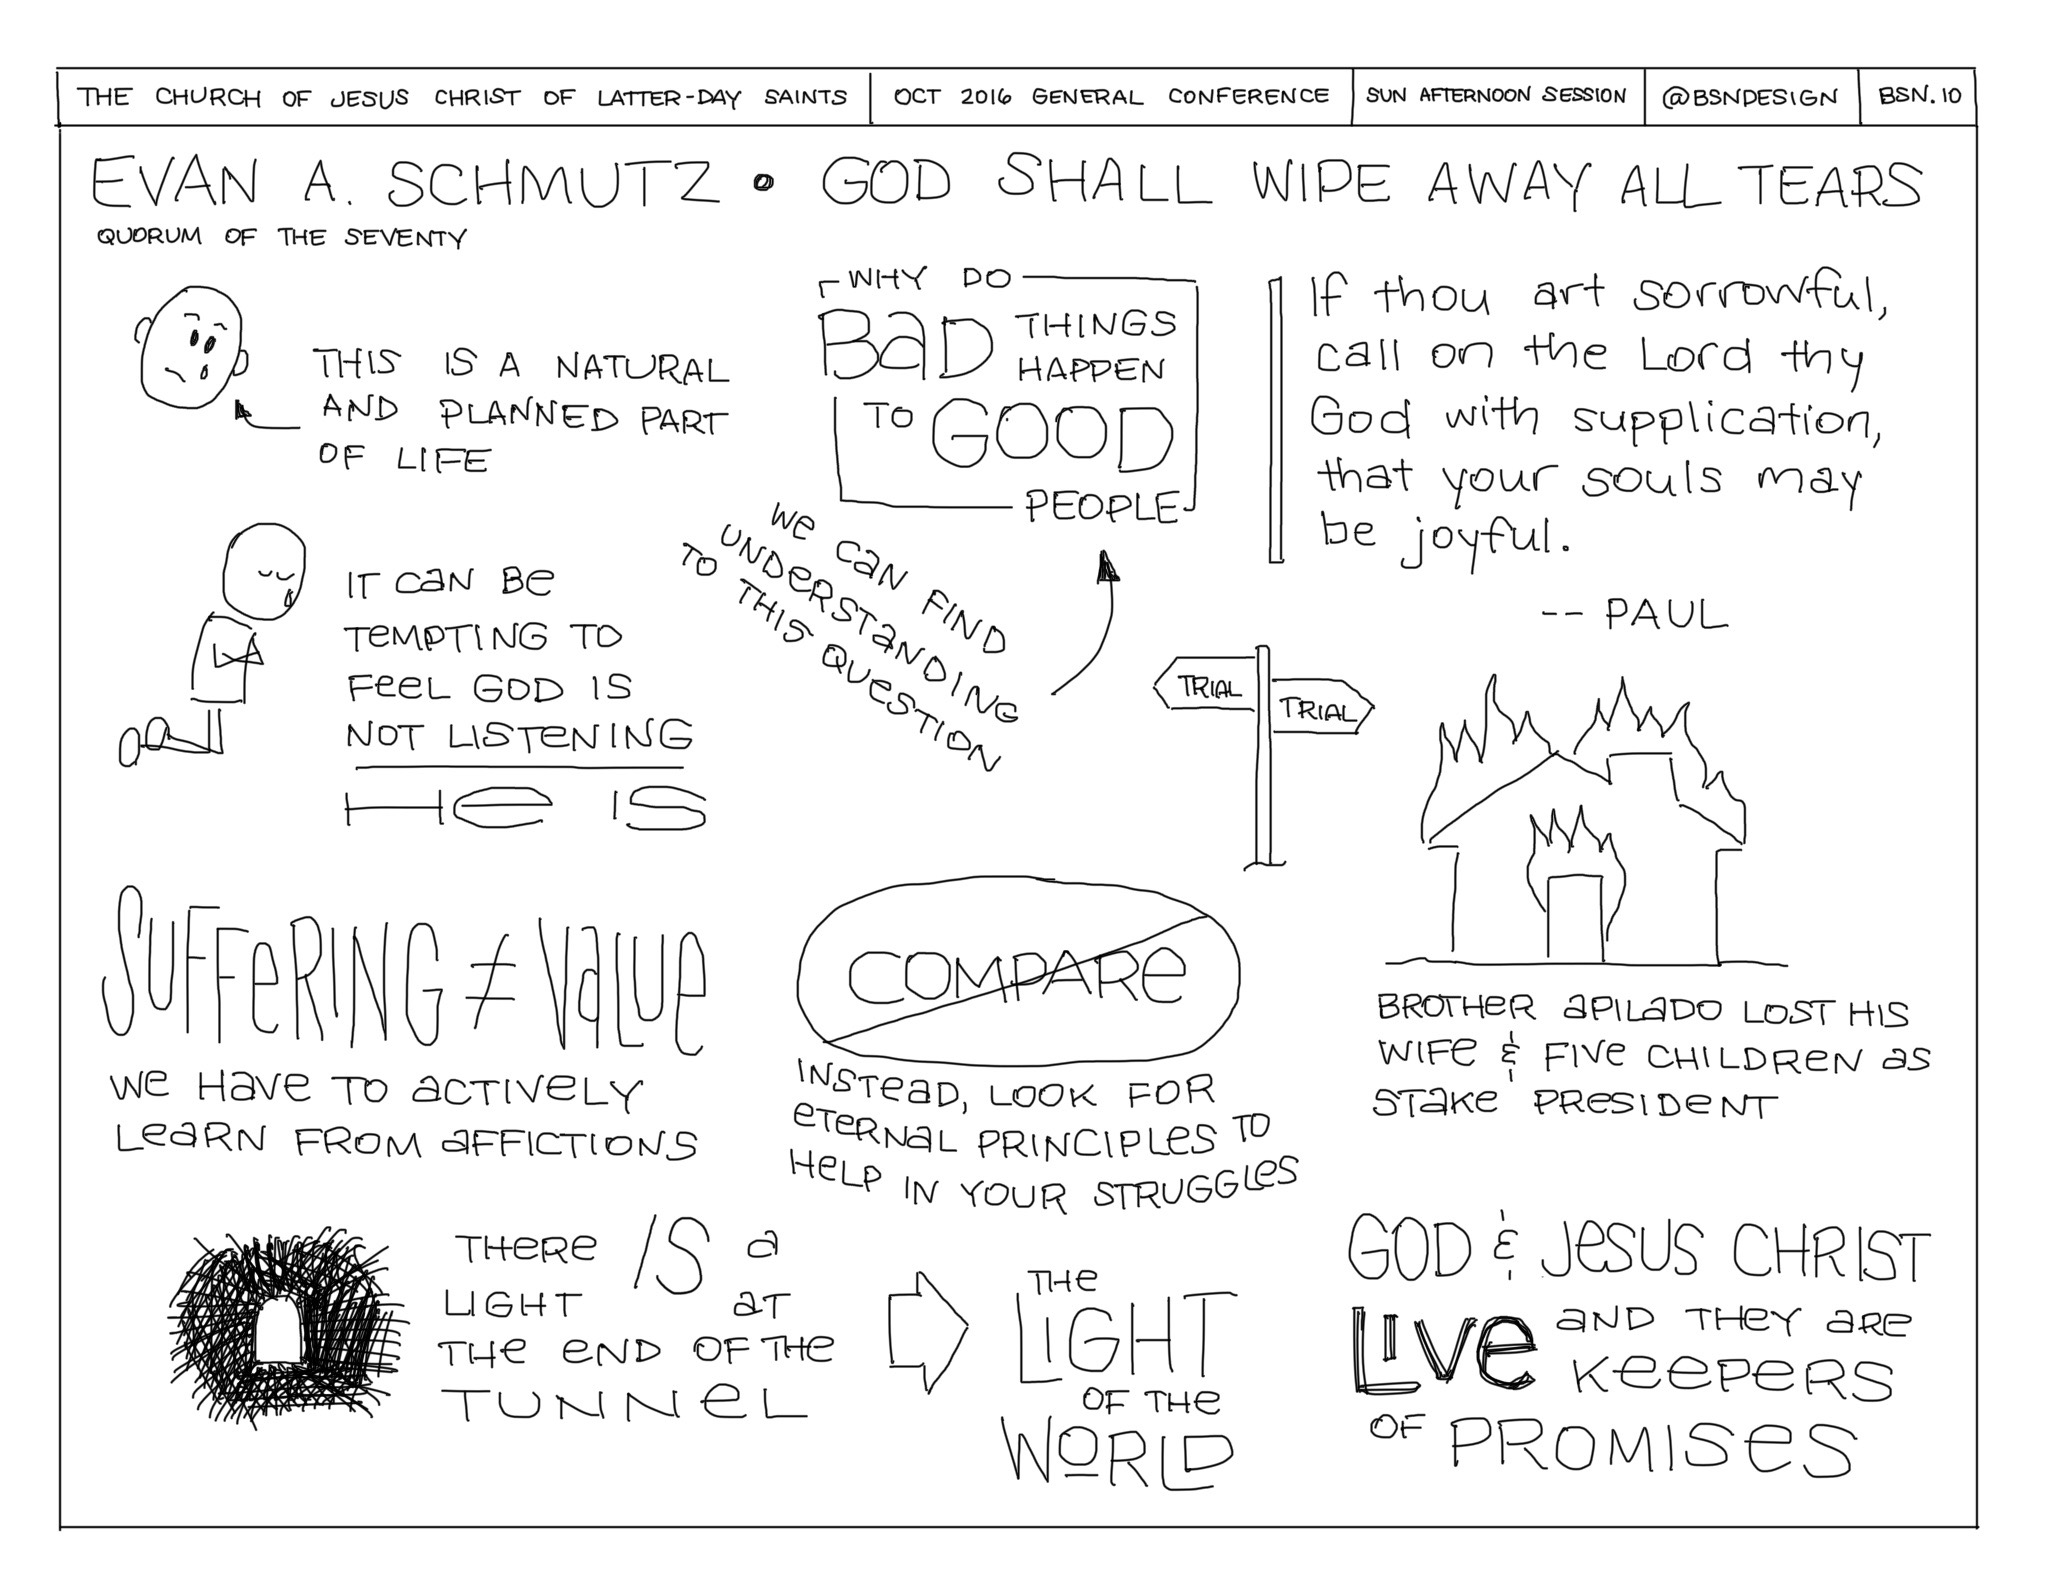 THE CHURCH OF JESUS CHRIST OF LATTER-DAY SAINTS
OCT 2016 GENERAL CONFERENCE
SUN AFTERNOON SESSION
@BSNDESIGN
BSN.10
EVAN A. SCHMUTZ • GOD SHALL WIPE AWAY ALL TEARS
QUORUM OF THE SEVENTY
THIS IS A NATURAL
AND PLANNED PART
OF LIFE
WHY DO
BaD THINGS
HAPPEN
TO GOOD
PEOPLE
If thou art sorrowful,
call on the Lord thy
God with supplication,
that your souls may
be joyful.
-- PAUL
IT CaN Be
TeMPTING TO
FeeL GOD IS
NOT LISTeNING
He IS
We CaN FIND
UNDeRSTaNDING
TO THIS QUeSTION
TRIAL
TRIAL
SUFFeRING ≠ VaLUe
We HaVe TO aCTIVeLY
LeaRN FROM aFFICTIONS
COMPARe
INSTeaD, LOOK FOR
eTeRNaL PRINCIPLeS TO
HeLP IN YOUR STRUGGLeS
BROTHeR aPILaDO LOST HIS
WIFe & FIVe CHILDReN aS
STaKe PReSIDeNT
THeRe IS a
LIGHT aT
THe eND OF THe
TUNNeL
THe
LIGHT
OF THe
WORLD
GOD & JeSUS CHRIST
LIVe aND THeY aRe
KeePeRS
OF PROMISeS